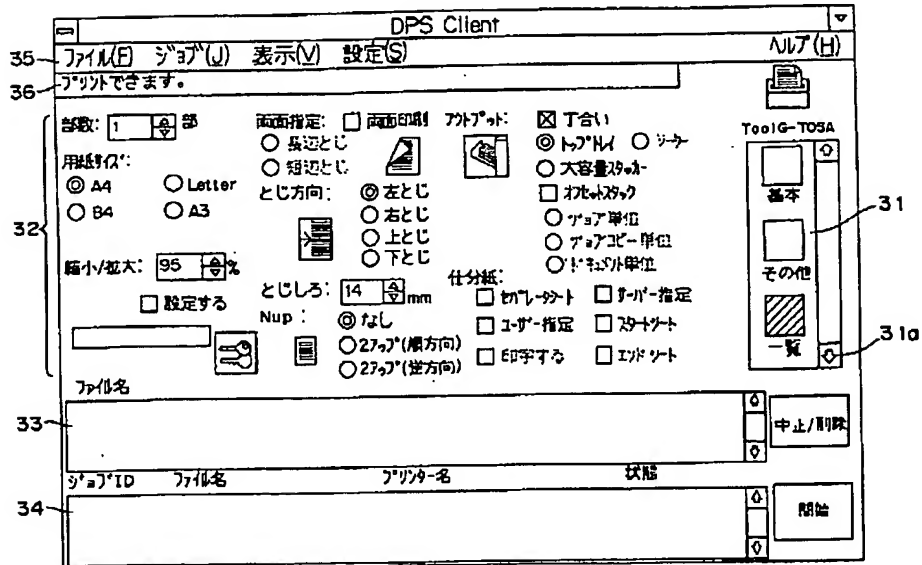 DPS Client
ファイル(F) ジョブ(J) 表示(V) 設定(S) ヘルプ(H)
35
36
プリントできます。
部数: 1 部
用紙サイズ:
A4 Letter
B4 A3
32
縮小/拡大: 95 %
設定する
両面指定: 両面印刷
長辺とじ
短辺とじ
とじ方向: 左とじ
右とじ
上とじ
下とじ
とじしろ: 14 mm
Nup: なし
2アップ(順方向)
2アップ(逆方向)
アウトプット: 丁合い
トップトレイ
大容量スタッカー
オフセットスタック
ジョブ単位
ジョブコピー単位
ドキュメント単位
仕分紙:
セパレータシート サーバー指定
ユーザー指定 スタートシート
印字する エンドシート
ToolG-TOSA
基本
31
その他
一覧
31a
ファイル名
33
中止/削除
ジョブID ファイル名 プリンター名 状態
34
開始